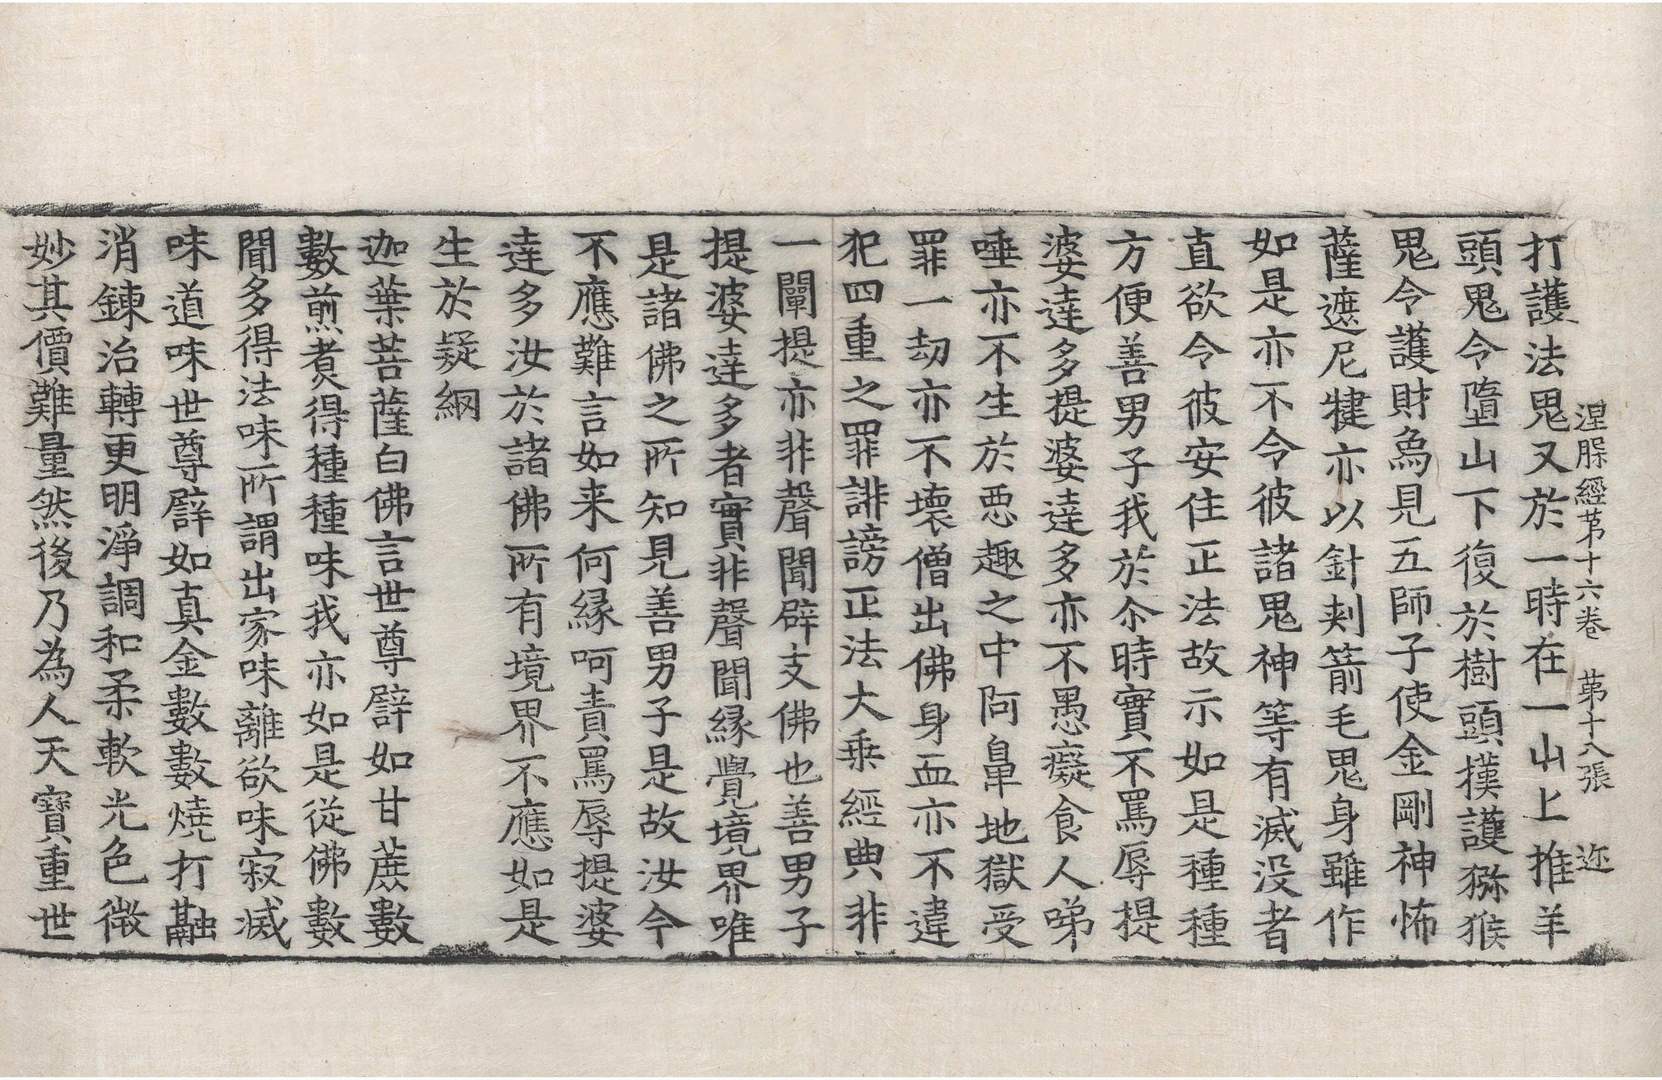 涅槃經第十六卷　第十八張　迩
打護法鬼又於一時在一山上推羊
頭鬼令墮山下復於樹頭撲護獼猴
鬼令護財象見五師子使金剛神怖
薩遮尼犍亦以針刾箭毛鬼身雖作
如是亦不令彼諸鬼神等有滅没者
直欲令彼安住正法故示如是種種
方便善男子我於尒時實不罵辱提
婆達多提婆達多亦不愚癡食人唾
唾亦不生於悪趣之中阿鼻地獄受
罪一劫亦不壞僧出佛身血亦不違
犯四重之罪誹謗正法大乗經典非
一闡提亦非聲聞辟支佛也善男子
提婆達多者實非聲聞緣覺境界唯
是諸佛之所知見善男子是故汝今
不應難言如来何緣呵責罵辱提婆
達多汝於諸佛所有境界不應如是
生於疑網
迦葉菩薩白佛言世尊譬如甘蔗數
數煎煑得種種味我亦如是從佛數
聞多得法味所謂出家味離欲味寂滅
味道味世尊譬如真金數數燒打融
消鍊治轉更明淨調和柔軟光色微
妙其價難量然後乃為人天寶重世